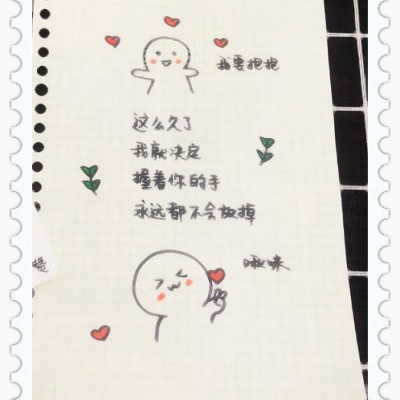 我要抱抱
这么久了
我就决定
握着你的手
永远都不会放掉
啾咪